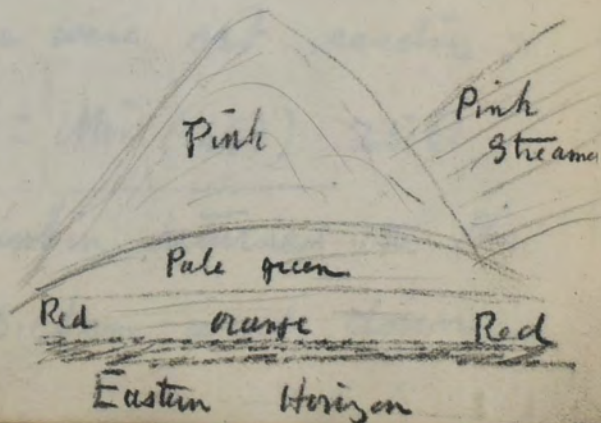 Pink
Pink
Pale green
Red orange Red
Eastern Horizon